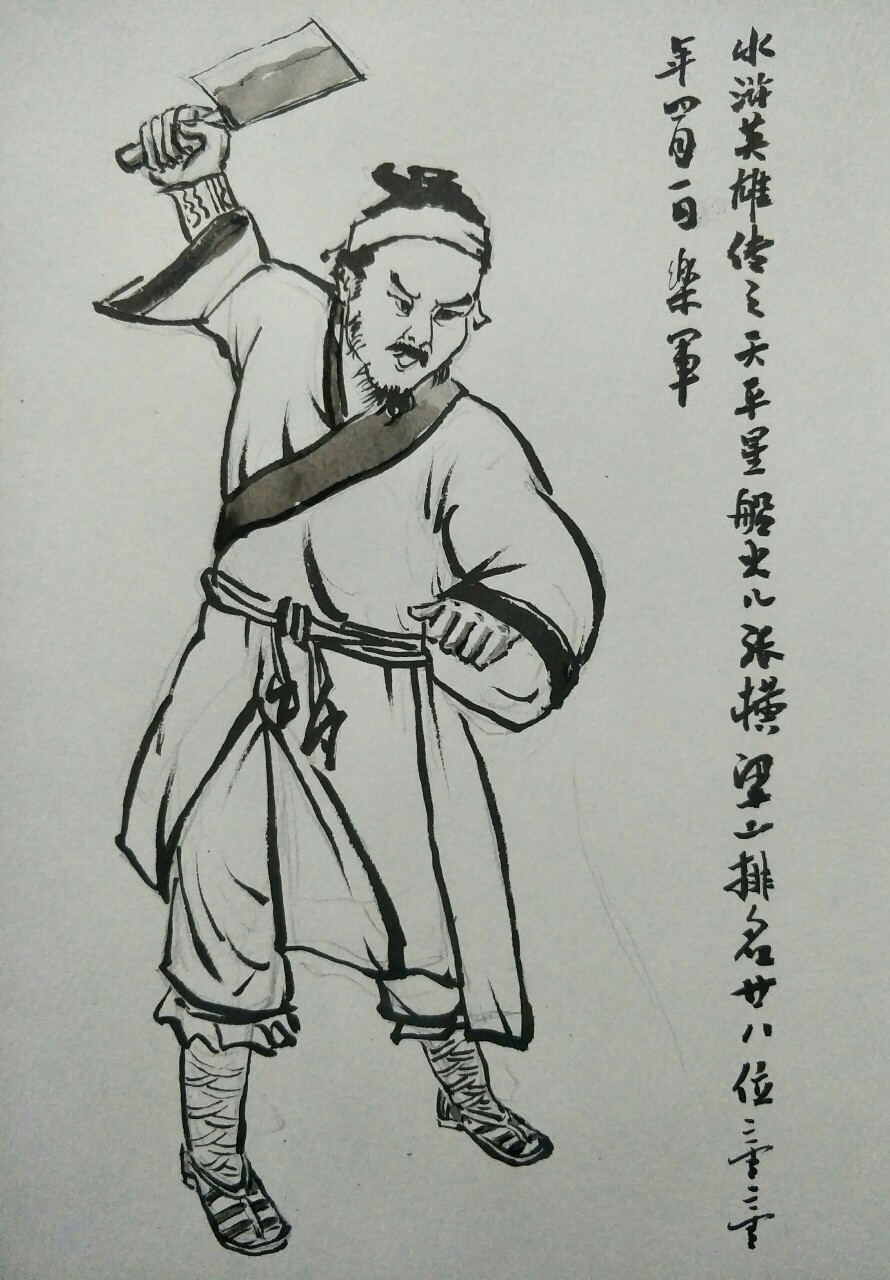 水浒英雄传之天平星船火儿张横梁山排名廿八位二零二零
年四月一日 乐军